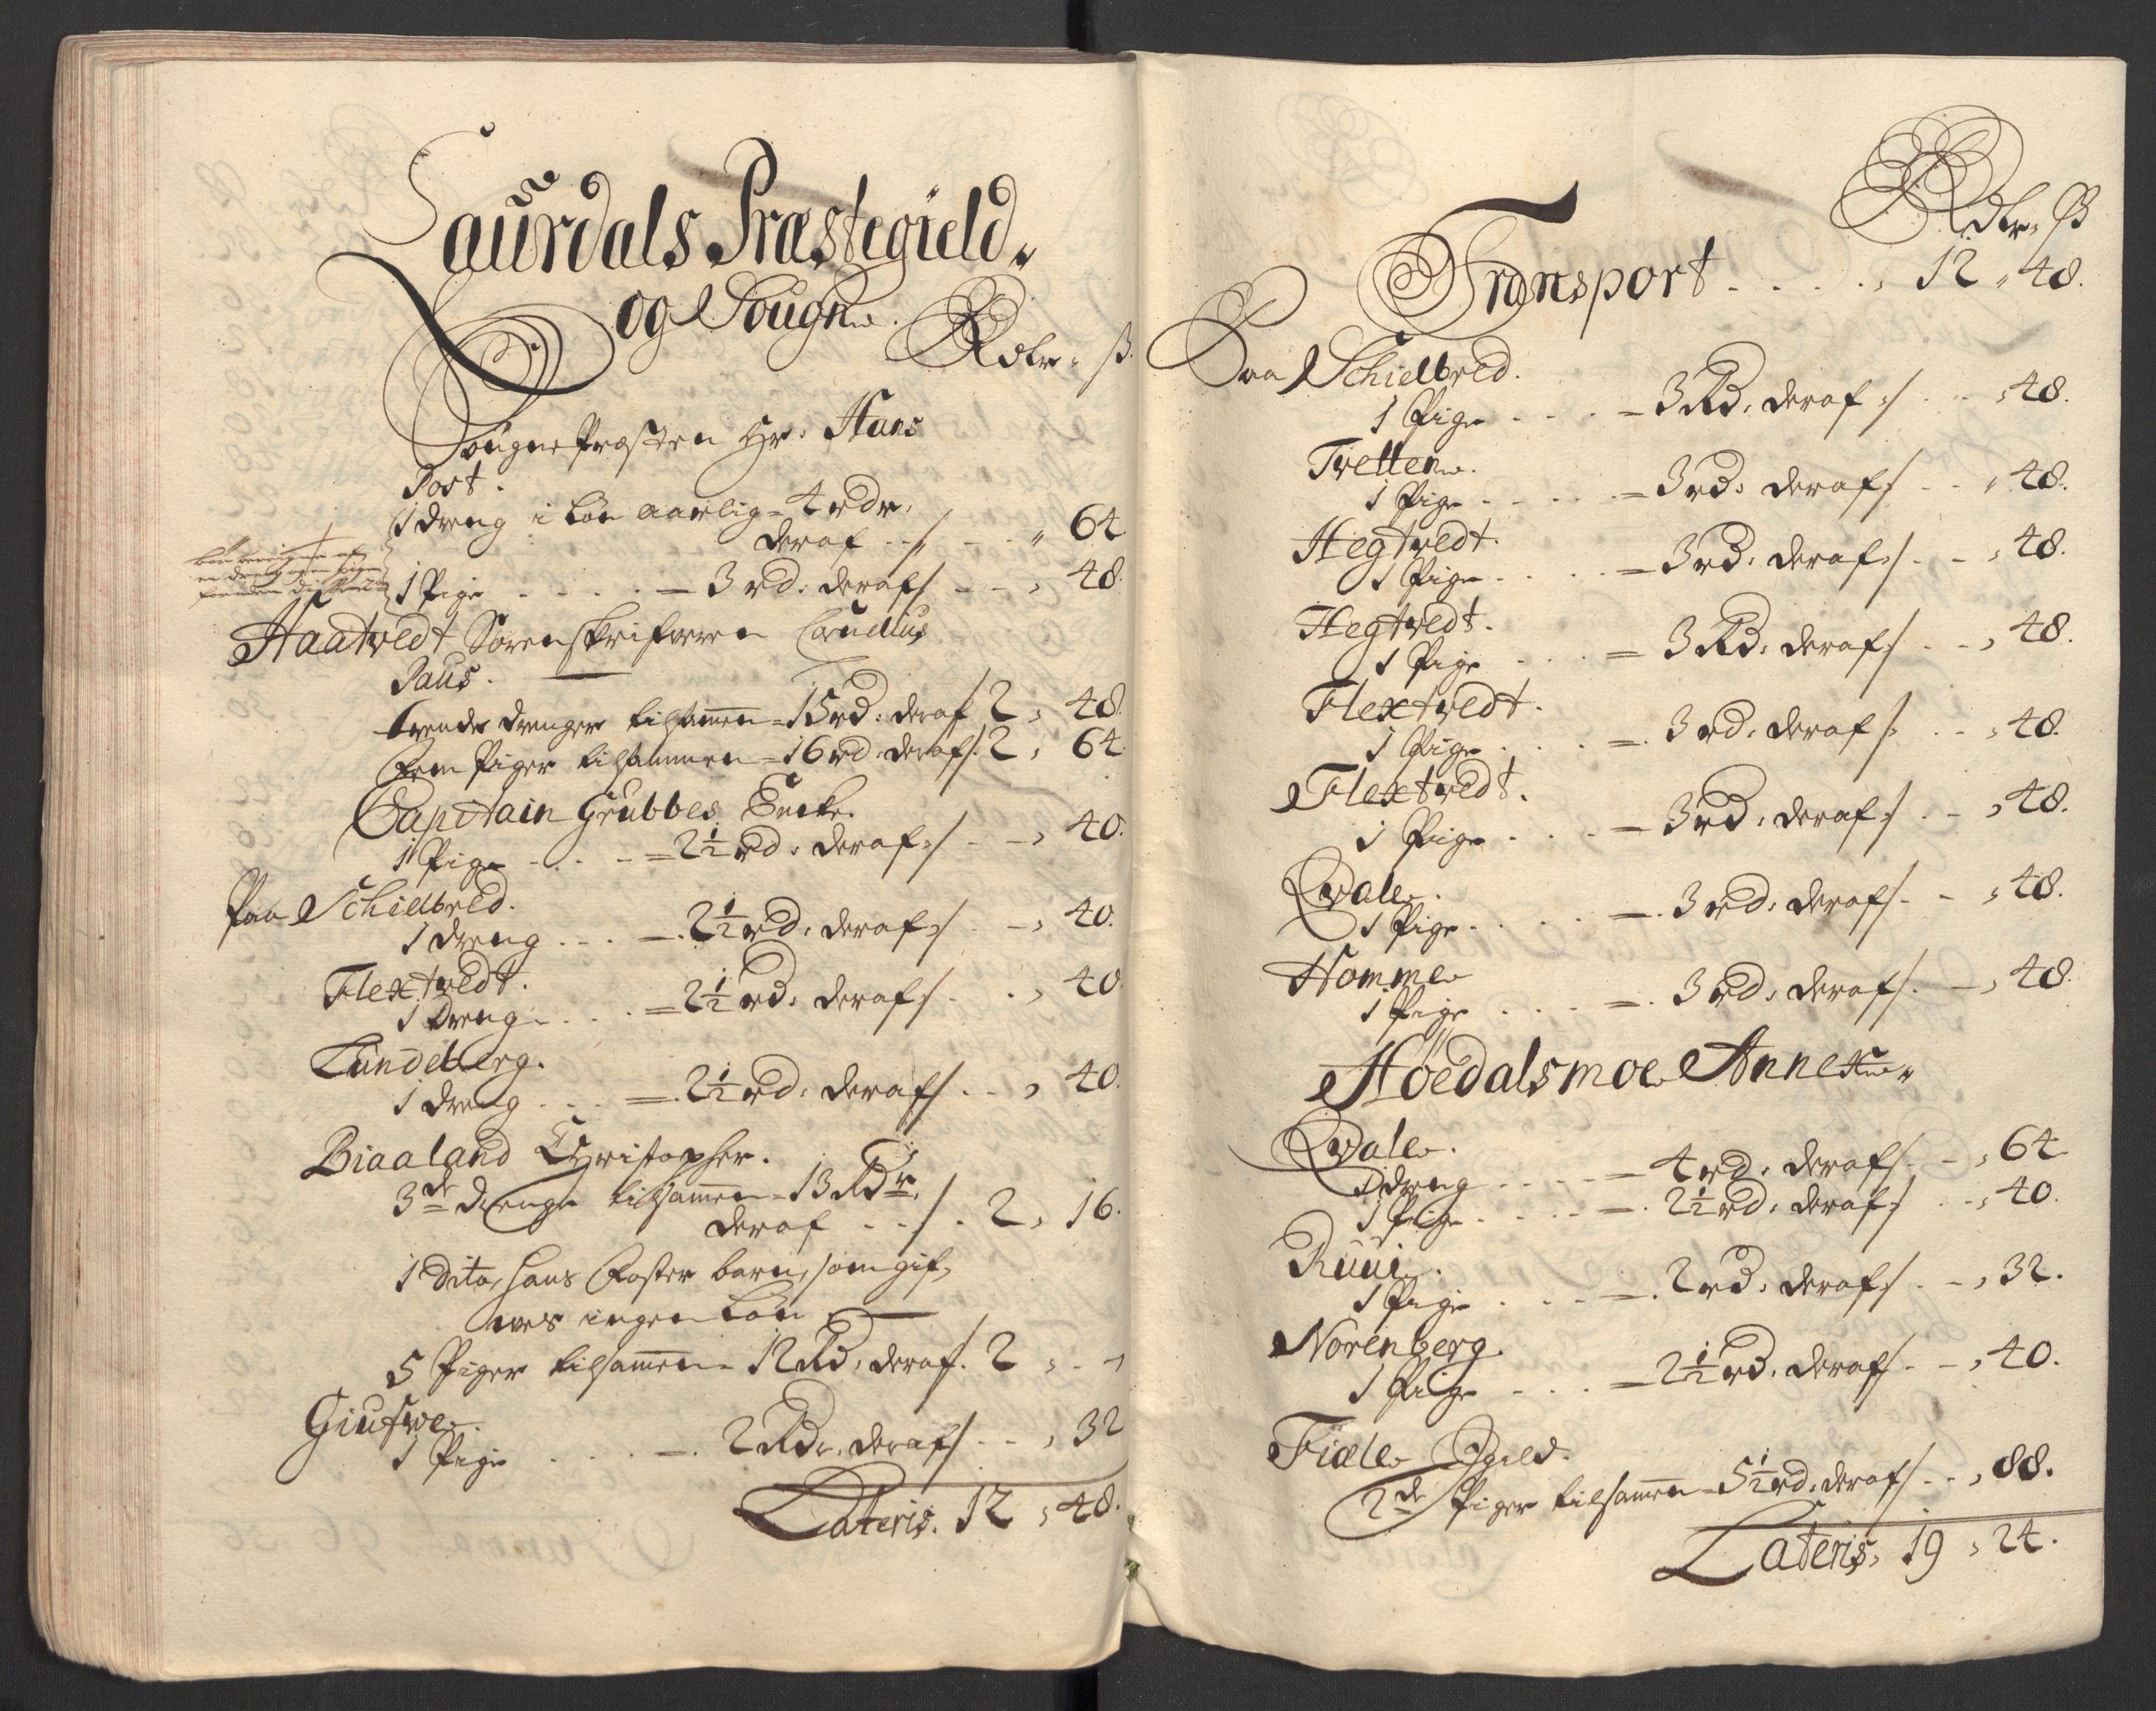 Laurdals Præstegield
og Sougn.
Rdlr. ß.
Sougne Præsten Hr. Hans
Post.
1 dreng i Løn aarlig = 4 rdr.
deraf - - /. - - " 64
1 Pige - - - - = 3 rd. deraf / - - , 48.
Haatvedt Sorenskrifveren Cornelius
Paus.
trende drenger tilsammen = 15 rd. deraf 2 , 48.
Fem Piger tilsammen = 16 rd. deraf /. 2 , 64.
Capitain Grubbes Encke.
1 Pige - - - = 2½ rd. deraf / - - , 40.
Paa Schielbred.
1 dreng - - - = 2½ rd. deraf / - - , 40.
Flextvedt.
1 Dreng - - - = 2½ rd. deraf / - - , 40.
Lundeberg.
1 dreng - - - = 2½ rd. deraf / - - , 40.
Biaaland Christopher.
3de drenge tilsammen = 13 Rdr.
deraf - - /. 2 , 16.
1 dito, hans Foster barn, som gif,,
wes ingen Løn
5 Piger tilsammen = 12 Rd. deraf. 2 , - -
Giufwe.
1 Pige - - - = 2 Rdr. deraf / - - , 32
Lateris. 12 , 48.
Rdlr. ß
Transport - - - - , 12 , 48.
Paa Schielbred.
1 Pige - - - = 3 Rd. deraf / - - , 48.
Tvetten.
1 Pige - - - = 3 rd. deraf / - - , 48.
Hegtvedt.
1 Pige - - - = 3 rd. deraf / - - , 48.
Hegtvedt.
1 Pige - - - = 3 Rd. deraf / - - , 48.
Flextvedt.
1 Pige - - - = 3 rd. deraf / - - , 48.
Flextvedt.
1 Pige - - - = 3 rd. deraf / - - , 48.
Qvale.
1 Pige - - - = 3 rd. deraf / - - , 48.
Homme
1 Pige - - - = 3 rd. deraf / - - , 48.
Høedalsmoe Annex
Qvale.
1 dreng - - - = 4 rd. deraf / - - , 64
1 Pige - - - = 2½ rd. deraf / - - , 40.
Ruui.
1 Pige - - - = 2 rd. deraf / - - , 32.
Norenberg.
1 Pige - - - = 2½ rd. deraf / - - , 40.
Fiælle
2de Piger tilsammen = 5½ rd. deraf / - - , 88.
Lateris, 19 , 24.